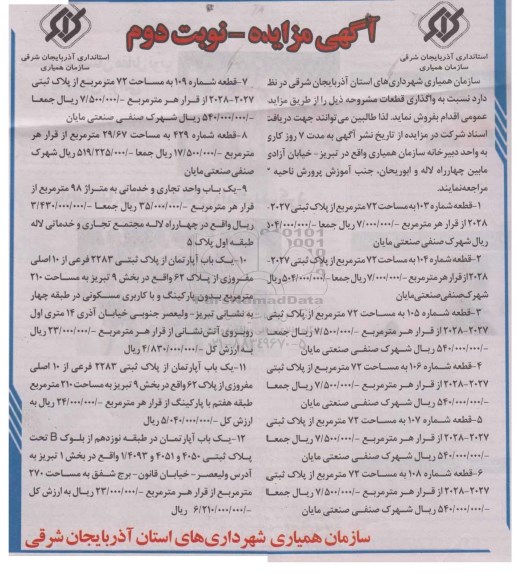 آگهی مزایده - نوبت دوم
استانداری آذربایجان شرقی
سازمان همیاری
استانداری آذربایجان شرقی
سازمان همیاری
سازمان همیاری شهرداری‌های استان آذربایجان شرقی در نظر
دارد نسبت به واگذاری قطعات مشروحه ذیل را از طریق مزایده
عمومی اقدام بفروش نماید. لذا طالبین می توانند جهت دریافت
اسناد شرکت در مزایده از تاریخ نشر آگهی به مدت ۷ روز کاری
به واحد دبیرخانه سازمان همیاری واقع در تبریز - خیابان آزادی
مابین چهارراه لاله و ابوریحان، جنب آموزش پرورش ناحیه ۳
مراجعه‌نمایند.
۱-قطعه شماره ۱۰۳ به مساحت ۷۲ مترمربع از پلاک ثبتی ۲۰۲۷-
۲۰۲۸ از قرار هر مترمربع ۷/۰۰۰/۰۰۰/- ریال جمعا ۵۰۴/۰۰۰/۰۰۰/-
ریال شهرک صنفی صنعتی مایان
۲-قطعه شماره ۱۰۴ به مساحت ۷۲ مترمربع از پلاک ثبتی ۲۰۲۷-
۲۰۲۸ از قرار هر مترمربع ۷/۰۰۰/۰۰۰/- ریال جمعا ۵۰۴/۰۰۰/۰۰۰/- ریال
شهرک صنفی صنعتی مایان
۳-قطعه شماره ۱۰۵ به مساحت ۷۲ مترمربع از پلاک ثبتی
۲۰۲۷-۲۰۲۸ از قرار هر مترمربع ۷/۵۰۰/۰۰۰/- ریال جمعا
۵۴۰/۰۰۰/۰۰۰/- ریال شهرک صنفی صنعتی مایان
۴-قطعه شماره ۱۰۶ به مساحت ۷۲ مترمربع از پلاک ثبتی
۲۰۲۷-۲۰۲۸ از قرار هر مترمربع ۷/۵۰۰/۰۰۰/- ریال جمعا
۵۴۰/۰۰۰/۰۰۰/- ریال شهرک صنفی صنعتی مایان
۵-قطعه شماره ۱۰۷ به مساحت ۷۲ مترمربع از پلاک ثبتی
۲۰۲۷-۲۰۲۸ از قرار هر مترمربع ۷/۵۰۰/۰۰۰/- ریال جمعا
۵۴۰/۰۰۰/۰۰۰/- ریال شهرک صنفی صنعتی مایان
۶-قطعه شماره ۱۰۸ به مساحت ۷۲ مترمربع از پلاک ثبتی
۲۰۲۷-۲۰۲۸ از قرار هر مترمربع ۷/۵۰۰/۰۰۰/- ریال جمعا
۵۴۰/۰۰۰/۰۰۰/- ریال شهرک صنفی صنعتی مایان
۷-قطعه شماره ۱۰۹ به مساحت ۷۲ مترمربع از پلاک ثبتی
۲۰۲۷-۲۰۲۸ از قرار هر مترمربع ۷/۵۰۰/۰۰۰/- ریال جمعا
۵۴۰/۰۰۰/۰۰۰/- ریال شهرک صنفی صنعتی مایان
۸-قطعه شماره ۴۲۹ به مساحت ۲۹/۶۷ مترمربع از قرار هر
مترمربع ۱۷/۵۰۰/۰۰۰/- ریال جمعا ۵۱۹/۲۲۵/۰۰۰/- ریال شهرک
صنفی صنعتی مایان
۹-یک باب واحد تجاری و خدماتی به متراژ ۹۸ مترمربع از
قرار هر مترمربع ۳۵/۰۰۰/۰۰۰/- ریال جمعا ۳/۴۳۰/۰۰۰/۰۰۰/-
ریال واقع در چهارراه لاله مجتمع تجاری و خدماتی لاله
طبقه اول پلاک ۵
۱۰-یک باب آپارتمان از پلاک ثبتی ۲۲۸۳ فرعی از ۱۰ اصلی
مفروزی از پلاک ۶۲ واقع در بخش ۹ تبریز به مساحت ۲۱۰
مترمربع بدون پارکینگ و با کاربری مسکونی در طبقه چهار
به نشانی تبریز - ولیعصر جنوبی خیابان آذری ۱۴ متری اول
روبروی آتش نشانی از قرار هر مترمربع ۲۳/۰۰۰/۰۰۰/- ریال
به ارزش کل ۴/۸۳۰/۰۰۰/۰۰۰/- ریال
۱۱-یک باب آپارتمان از پلاک ثبتی ۲۲۸۳ فرعی از ۱۰ اصلی
مفروزی از پلاک ۶۲ واقع در بخش ۹ تبریز به مساحت ۲۱۰ مترمربع
طبقه هفتم با پارکینگ از قرار هر مترمربع ۲۴/۰۰۰/۰۰۰/- ریال به
ارزش کل ۵/۰۴۰/۰۰۰/۰۰۰/- ریال
۱۲-یک باب آپارتمان در طبقه نوزدهم از بلوک B تحت
پلاک ثبتی ۴۰۵۰ و ۴۰۵۱ و ۱/۴۰۹۳ واقع در بخش ۱ تبریز به
آدرس ولیعصر - خیابان قانون - برج شفق به مساحت ۲۷۰
مترمربع از قرار هر مترمربع ۲۳/۰۰۰/۰۰۰/- ریال به ارزش کل
۶/۲۱۰/۰۰۰/۰۰۰/- ریال
سازمان همیاری شهرداری‌های استان آذربایجان شرقی